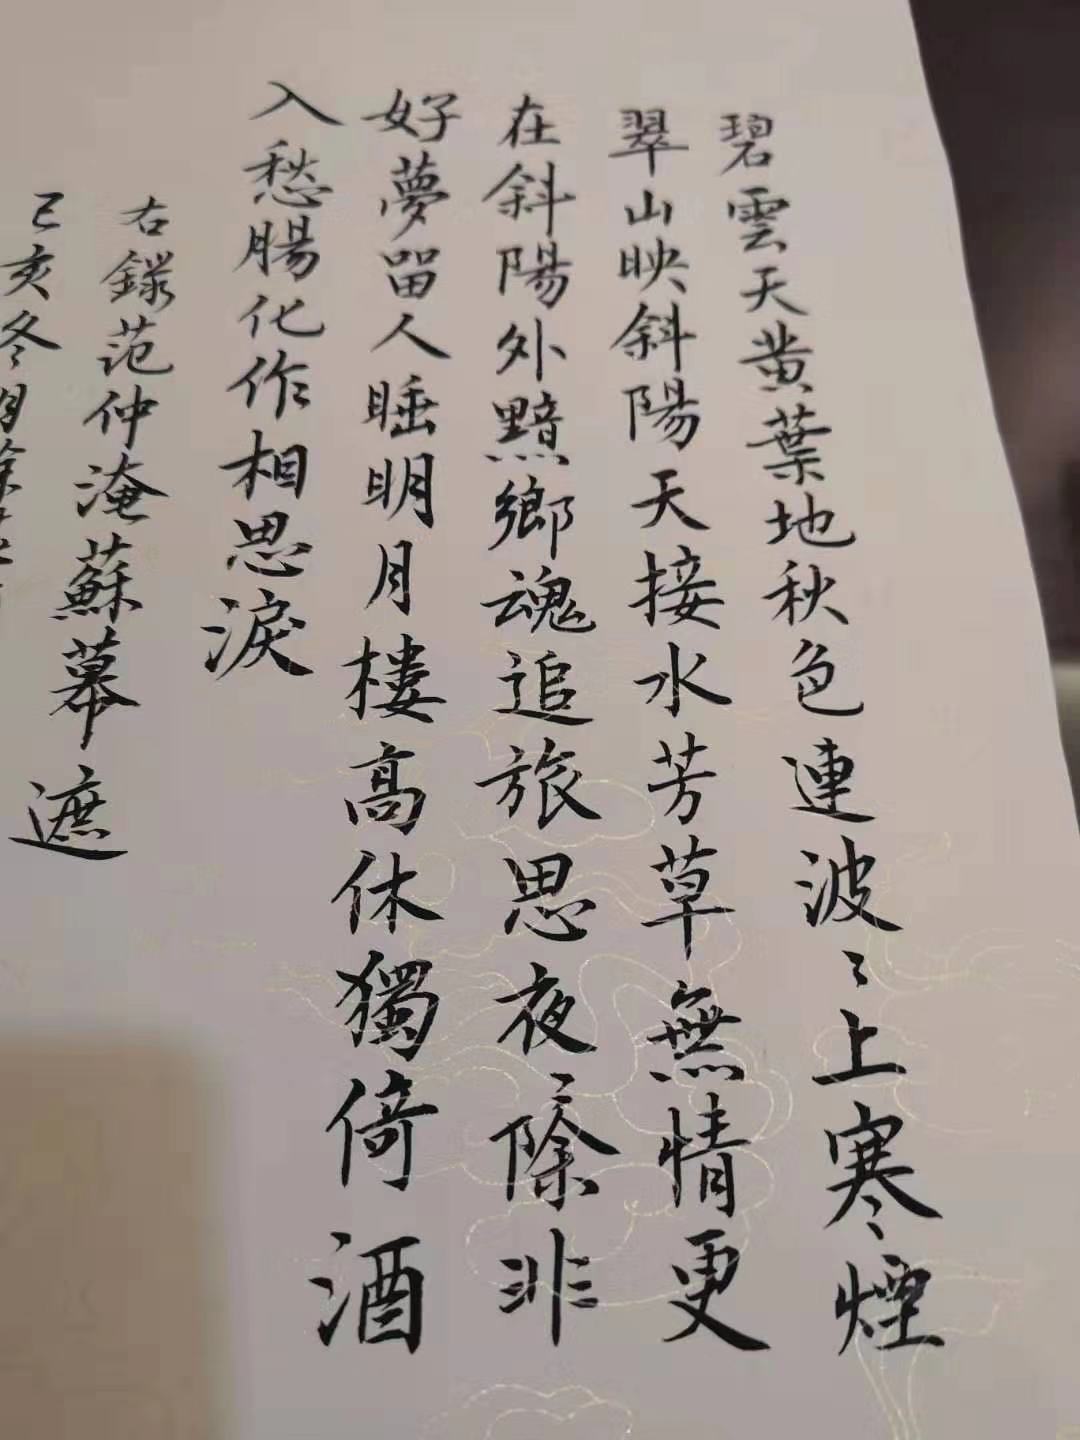 碧雲天黄葉地秋色連波〻上寒煙
翠山映斜陽天接水芳草無情更
在斜陽外黯鄉魂追旅思夜〻除非
好夢留人睡明月樓高休獨倚酒
入愁腸化作相思淚
右錄范仲淹蘇幕遮
己亥冬月徐